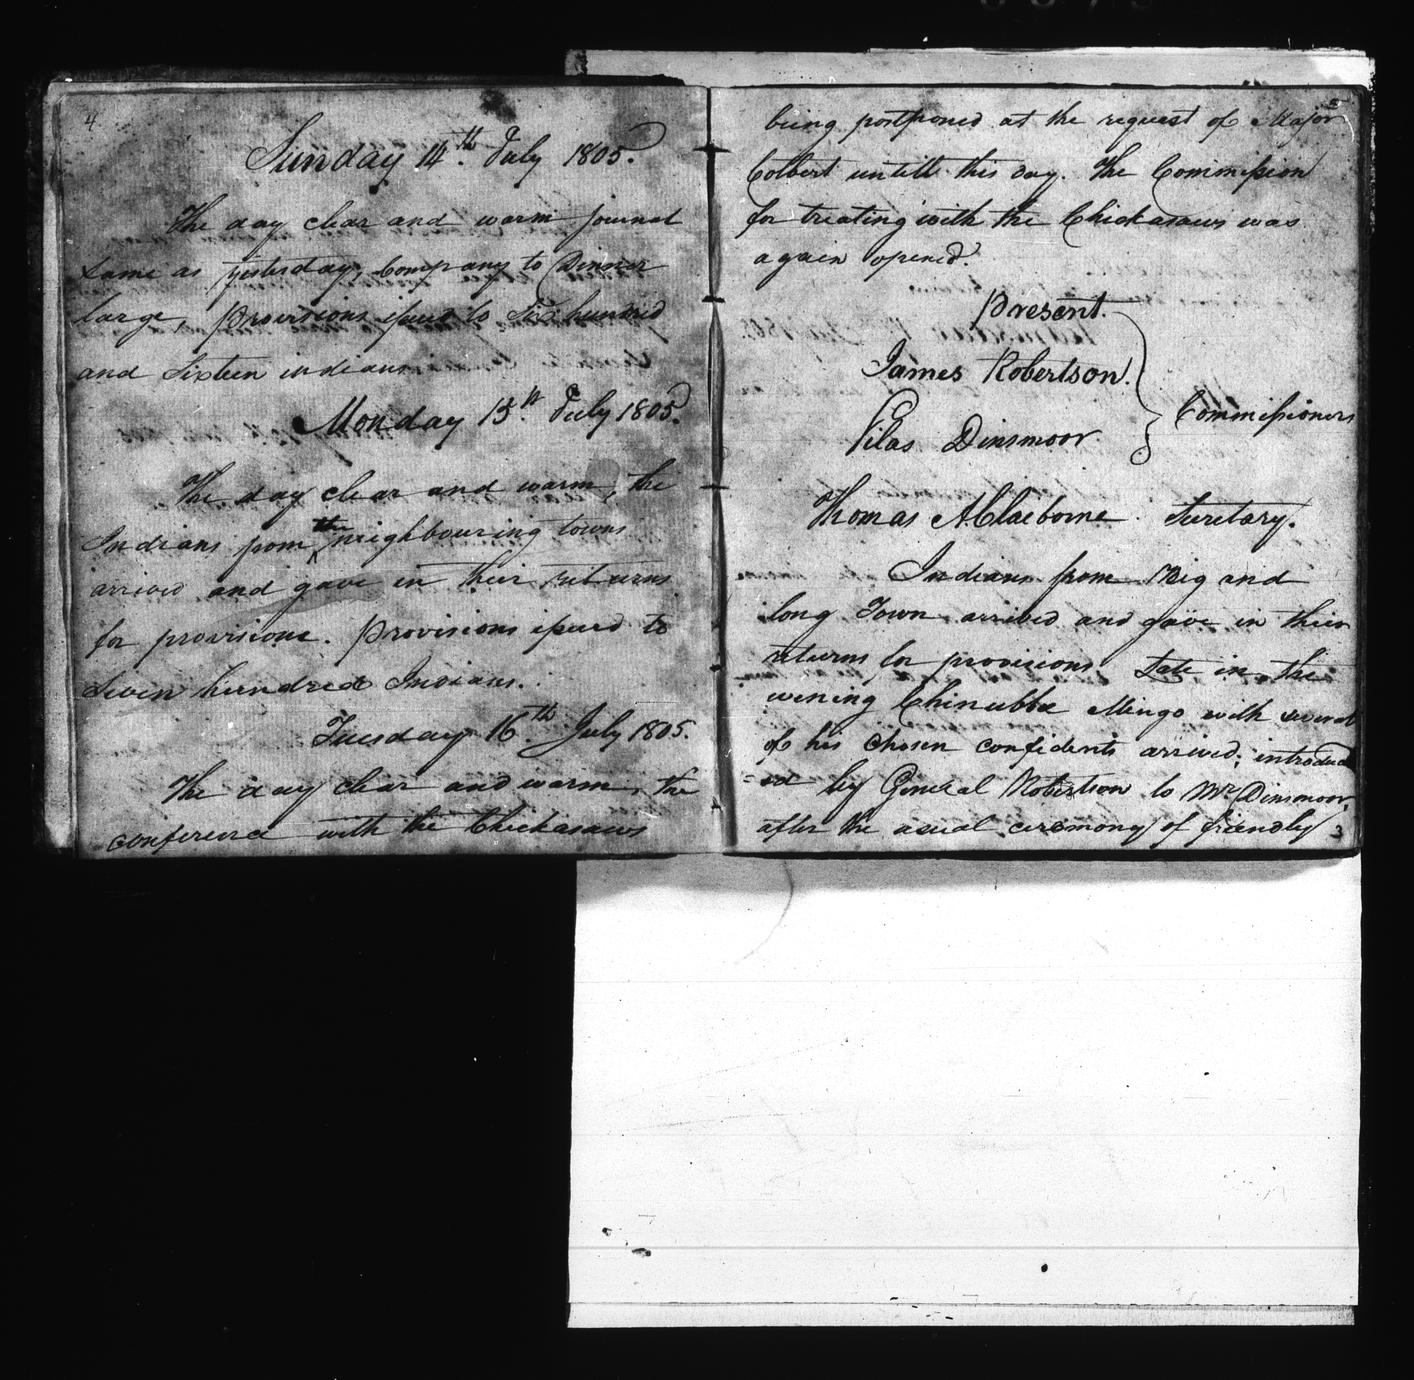 4
Sunday 14th. July 1805.
The day clear and warm journal
same as yesterday, Company to Dinner
large, Provisions issued to Six hundred
and Sixteen indians
Monday 15th July 1805.
The day clear and warm, the
Indians from the neighbouring towns
arrived and gave in their returns
for provisions. Provisions issued to
Seven hundred Indians.
Tuesday 16th. July 1805.
The day clear and warm, the
conference with the Chickasaws
being postponed at the request of Major
Colbert untill this day. The Commission
for treating with the Chickasaws was
again opened.
Present.
James Robertson.
Silas Dinsmoor
Commissioners
Thomas A Claiborne Secretary.
Indians from Big and
long Town arrived and gave in their
returns for provisions Late in the
evening Chinubbee Mingo with several
of his chosen confidents arrived; introduc
=ed by General Robertson to Mr. Dinsmoor,
after the usual ceremony of friendly
3